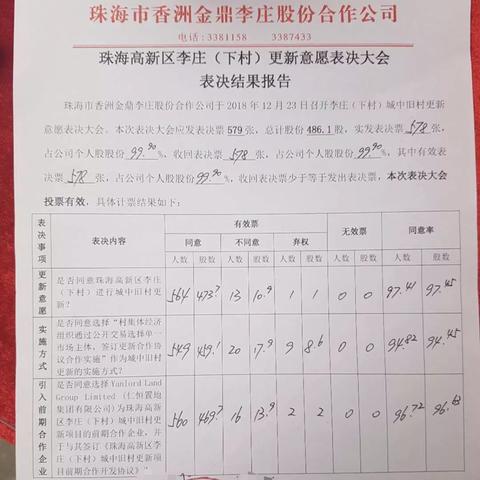 珠海市香洲金鼎李庄股份合作公司
电话:3381158 3387433
珠海高新区李庄（下村）更新意愿表决大会
表决结果报告
珠海市香洲金鼎李庄股份合作公司于2018年12月23日召开李庄（下村）城中旧村更新
意愿表决大会。本次表决大会应发表决票579张，总计股份486.1股，实发表决票578张，
占公司个人股股份99.90%，收回表决票578张，占公司个人股份99.90%，其中有效表
决票578张，占公司个人股份99.90%，收回表决票少于等于发出表决票，本次表决大会
投票有效，具体计票结果如下：
表决事项 表决内容 有效票 无效票 同意率
同意 不同意 弃权
人数 股数 人数 股数 人数 股数 人数 股数 人数 股数
更新意愿
是否同意珠海高新区李庄
（下村）进行城中旧村更
新？
564 473.7 13 10.9 1 1 0 0 97.41 97.45
实施方式
是否同意选择“村集体经济
组织通过公开交易选择单一
市场主体，签订更新合作协
议合作实施”作为城中旧村
更新的实施方式？
549 459.1 20 17.9 9 8.6 0 0 94.82 94.45
引入前期合作企业
是否同意选择 Yanlord Land
Group Limited (仁恒置地
集团有限公司)为珠海高新
区李庄（下村）城中旧村更
新项目的前期合作企业，并
于与其签订《珠海高新区李
庄（下村）城中旧村更新项
目前期合作开发协议》”
560 469.7 16 13.9 2 2 0 0 96.72 96.63